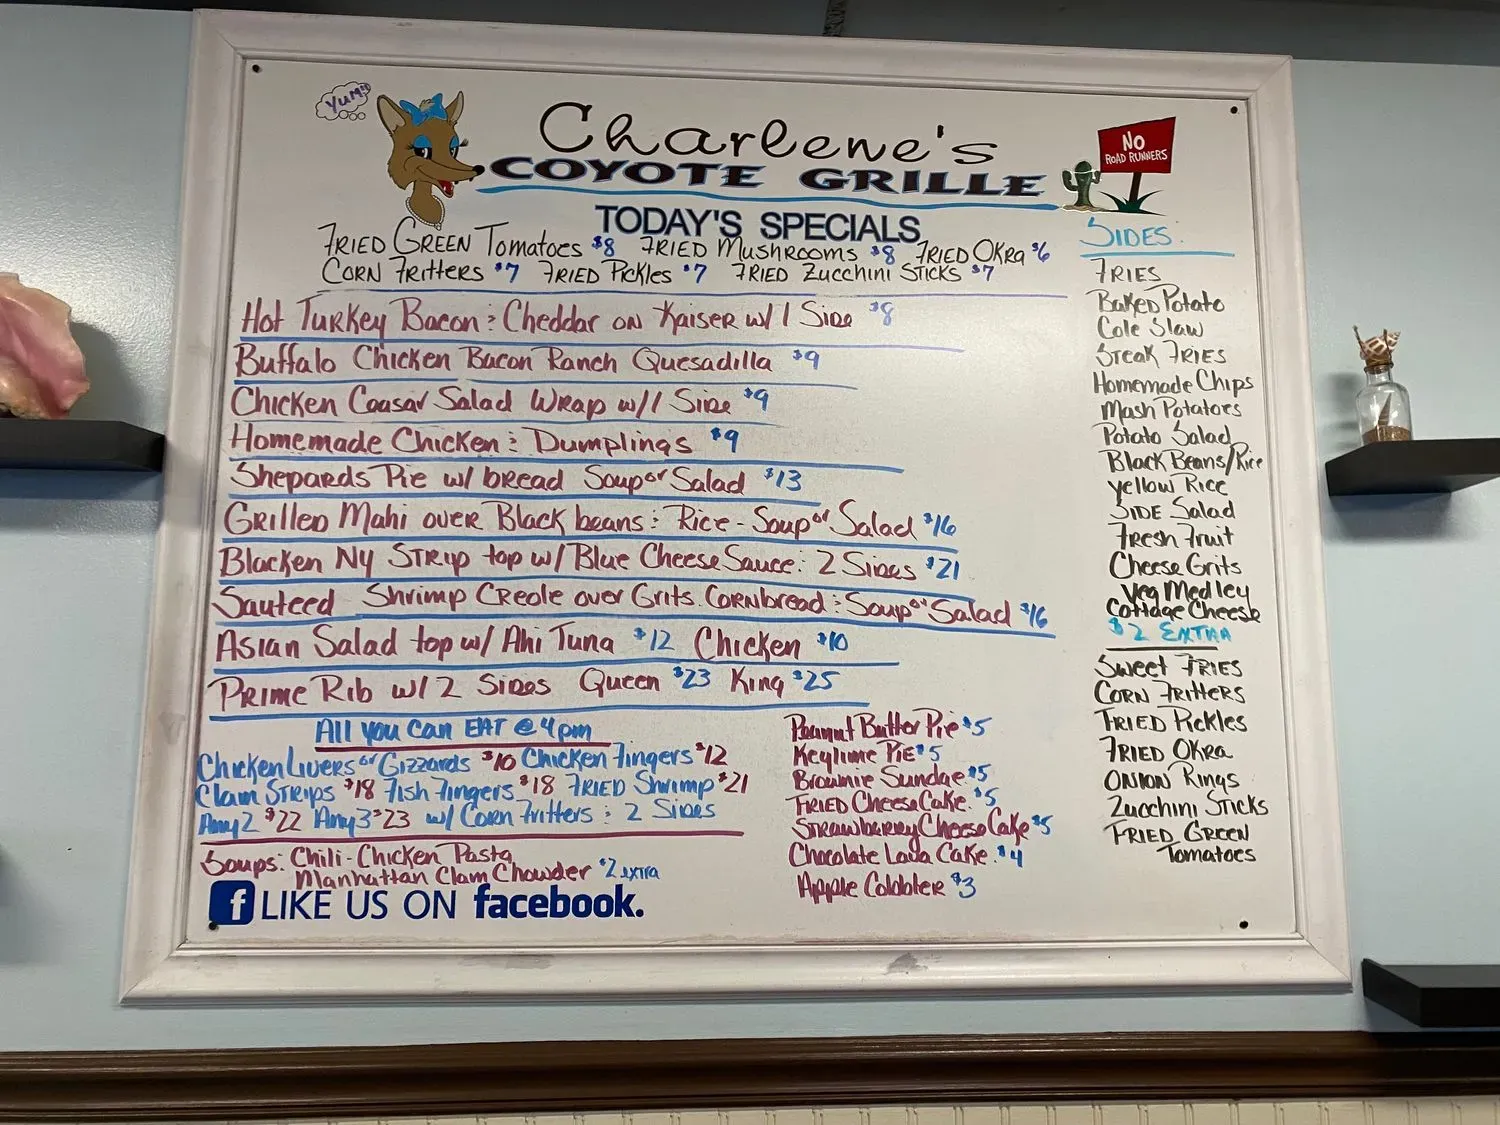 YUM!!
Charlene's
COYOTE GRILLE
NO
ROAD RUNNERS
TODAY'S SPECIALS
FRIED GREEN Tomatoes $8 FRIED Mushrooms $8 FRIED OKRA $6
CORN FRITTERS $7 FRIED Pickles $7 FRIED Zucchini STICKS $7
Hot Turkey Bacon : Cheddar ON Kaiser w/ 1 Side $8
Buffalo Chicken Bacon Ranch Quesadilla $9
Chicken Ceasar Salad Wrap w/1 Side $9
Homemade Chicken : Dumplings $9
Shepards Pie w/ bread Soup or Salad $13
Grilled Mahi over Black beans : Rice - Soup or Salad $16
Blacken NY STRIP top w/ Blue Cheese Sauce : 2 Sides $21
Sauteed Shrimp Creole over Grits. Cornbread : Soup or Salad $16
Asian Salad top w/ Ahi Tuna $12 Chicken $10
Prime Rib w/ 2 Sides Queen $23 King $25
All you can EAT @ 4pm
Chicken Livers or Gizzards $10 Chicken Fingers $12
Clam STRIPS $18 Fish Fingers $18 FRIED Shrimp $21
Any 2 $22 Any 3 $23 w/ Corn Fritters : 2 Sides
Soups: Chili - Chicken Pasta
Manhattan Clam Chowder $2 extra
f LIKE US ON facebook.
Peanut Butter Pie $5
Keylime Pie $5
Brownie Sundae $5
FRIED CheeseCake $5
Strawberry CheeseCake $5
Chocolate Lava Cake $4
Apple Cobbler $3
SIDES
FRIES
Baked Potato
Cole Slaw
Steak FRIES
Homemade Chips
Mash Potatoes
Potato Salad
Black Beans/Rice
yellow Rice
SIDE Salad
Fresh Fruit
Cheese Grits
Veg Medley
Cottage Cheese
$2 EXTRA
Sweet FRIES
CORN FRITTERS
FRIED Pickles
FRIED OKRA
ONION Rings
Zucchini STICKS
FRIED GREEN
Tomatoes